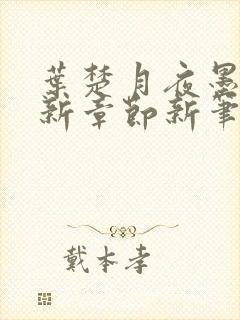 葉楚月夜墨
新章節新筆
戴本孝